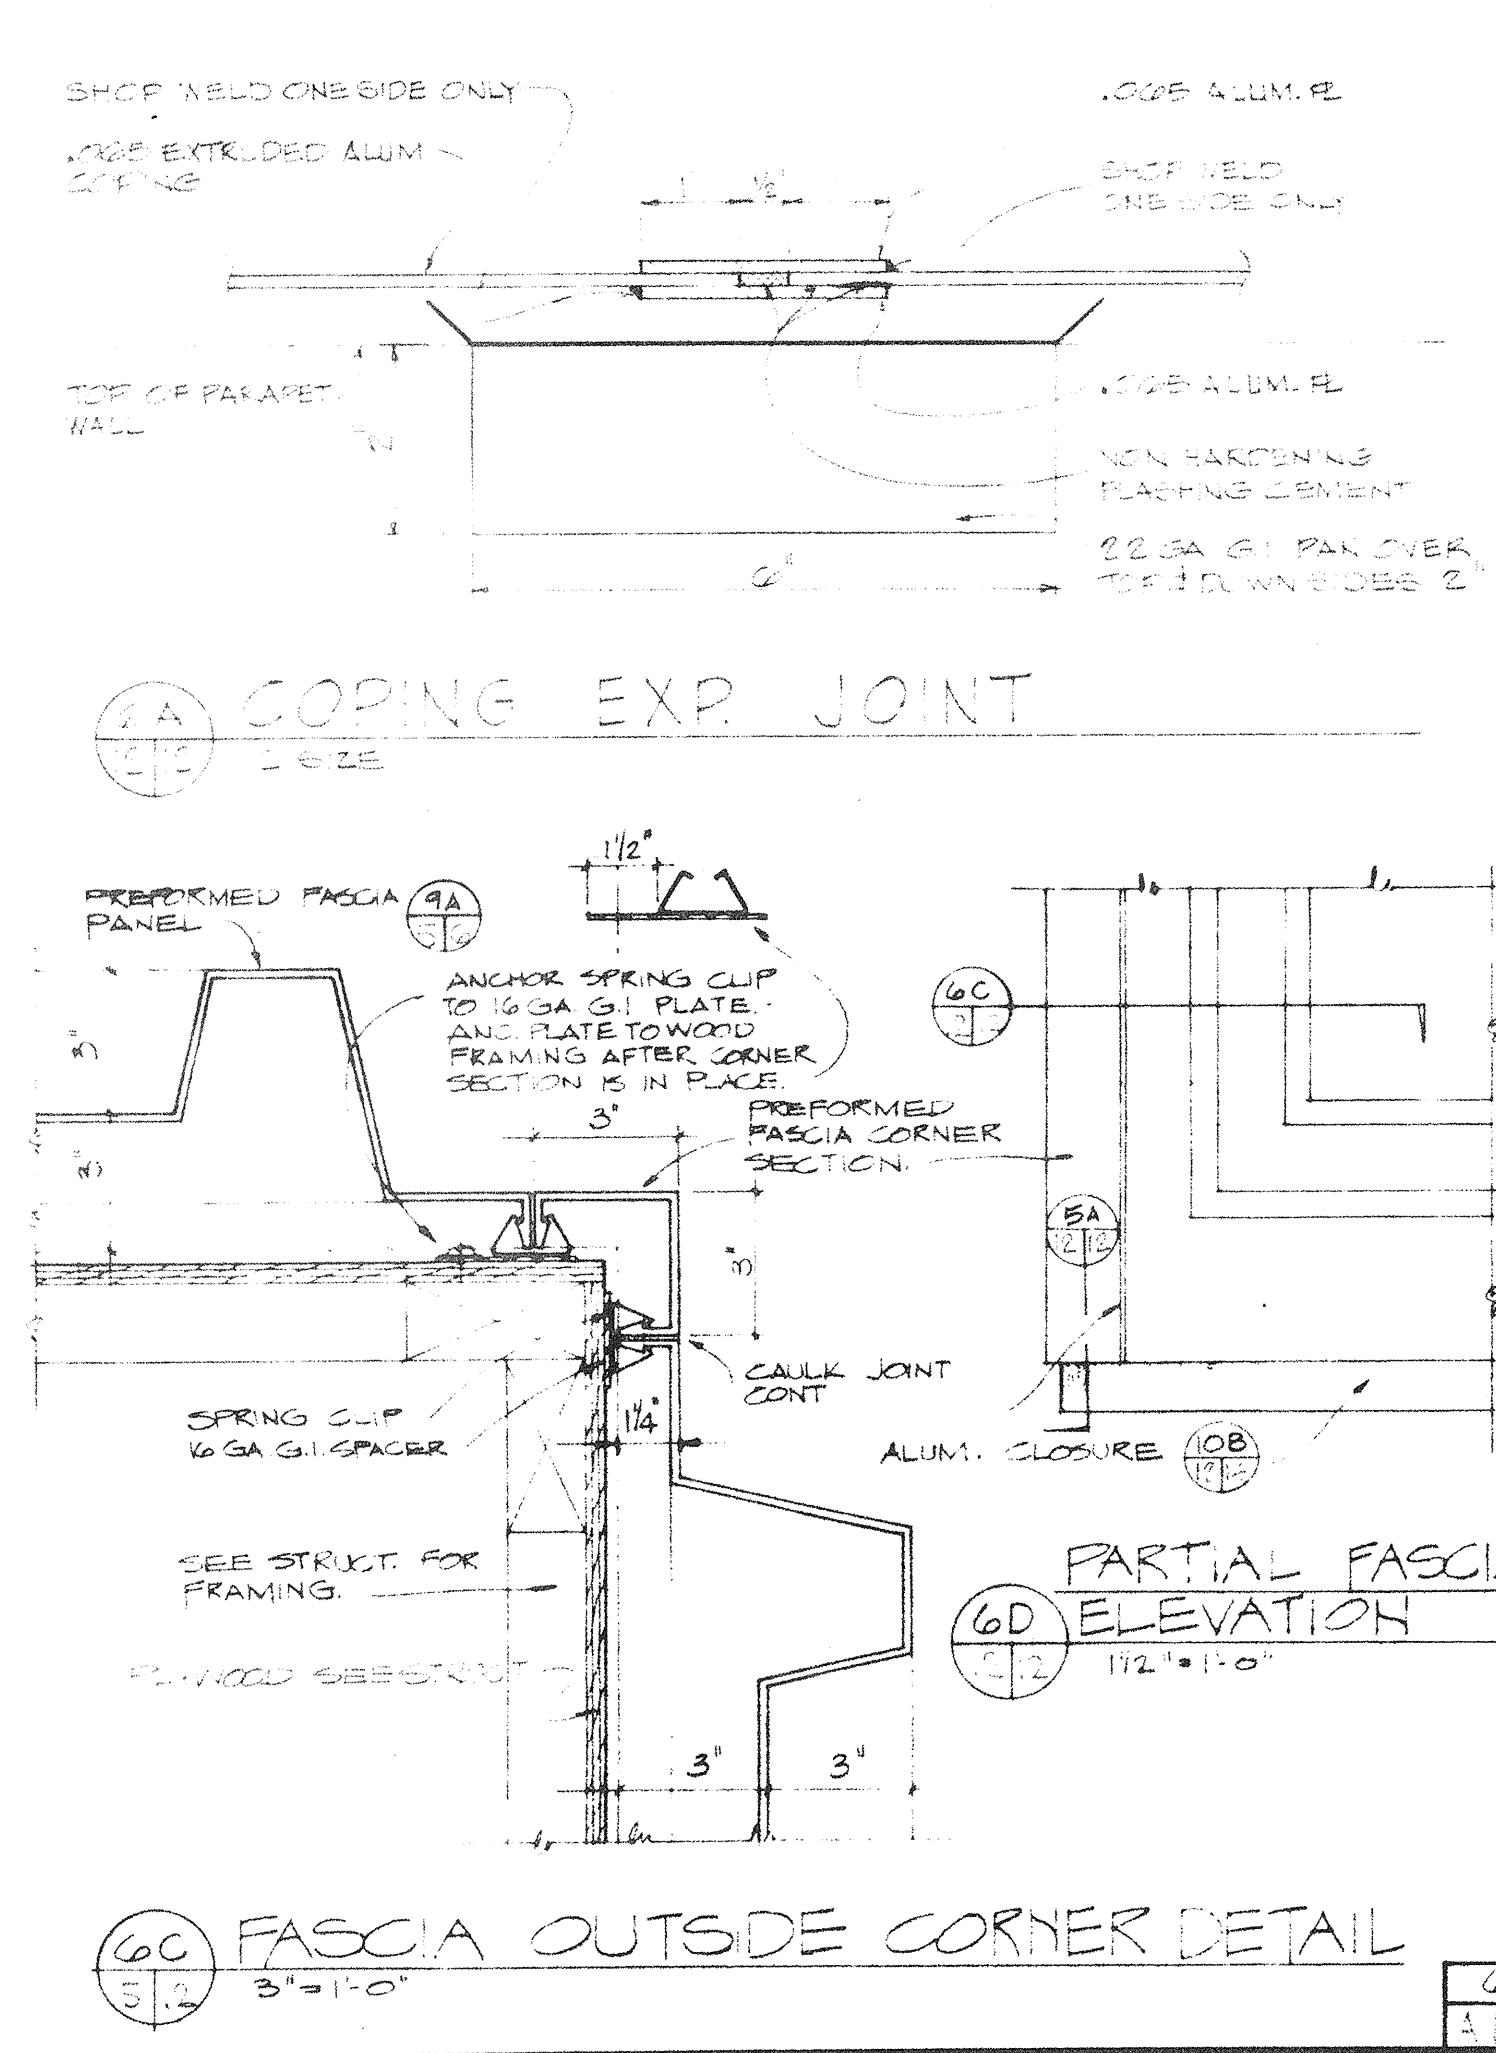 SHOP WELD ONE SIDE ONLY
.065 EXTRUDED ALUM
COPING
.065 ALUM. PL
SHOP WELD
ONE SIDE ONLY
1/2"
TOP OF PARAPET
WALL
2"
.065 ALUM. PL
NON HARDENING
FLASHING CEMENT
22 GA G.I. PAN OVER
TOP & DOWN SIDES 2"
6"
6A
12 12
COPING EXP. JOINT
SIZE
1 1/2"
PREFORMED FASCIA
PANEL
9A
5 6
ANCHOR SPRING CLIP
TO 16 GA. G.I PLATE.
ANC. PLATE TO WOOD
FRAMING AFTER CORNER
SECTION IS IN PLACE.
3"
3"
3"
PREFORMED
FASCIA CORNER
SECTION.
3"
CAULK JOINT
CONT
SPRING CLIP
16 GA. G.I. SPACER
1 1/4"
SEE STRUCT. FOR
FRAMING.
PLYWOOD SEE STRUCT
3"
3"
6C
5A
12 12
ALUM. CLOSURE
10B
12
PARTIAL
ELEVATION
6D
1 1/2" = 1'-0"
6C
5
FASCIA OUTSIDE CORNER DETAIL
3" = 1'-0"